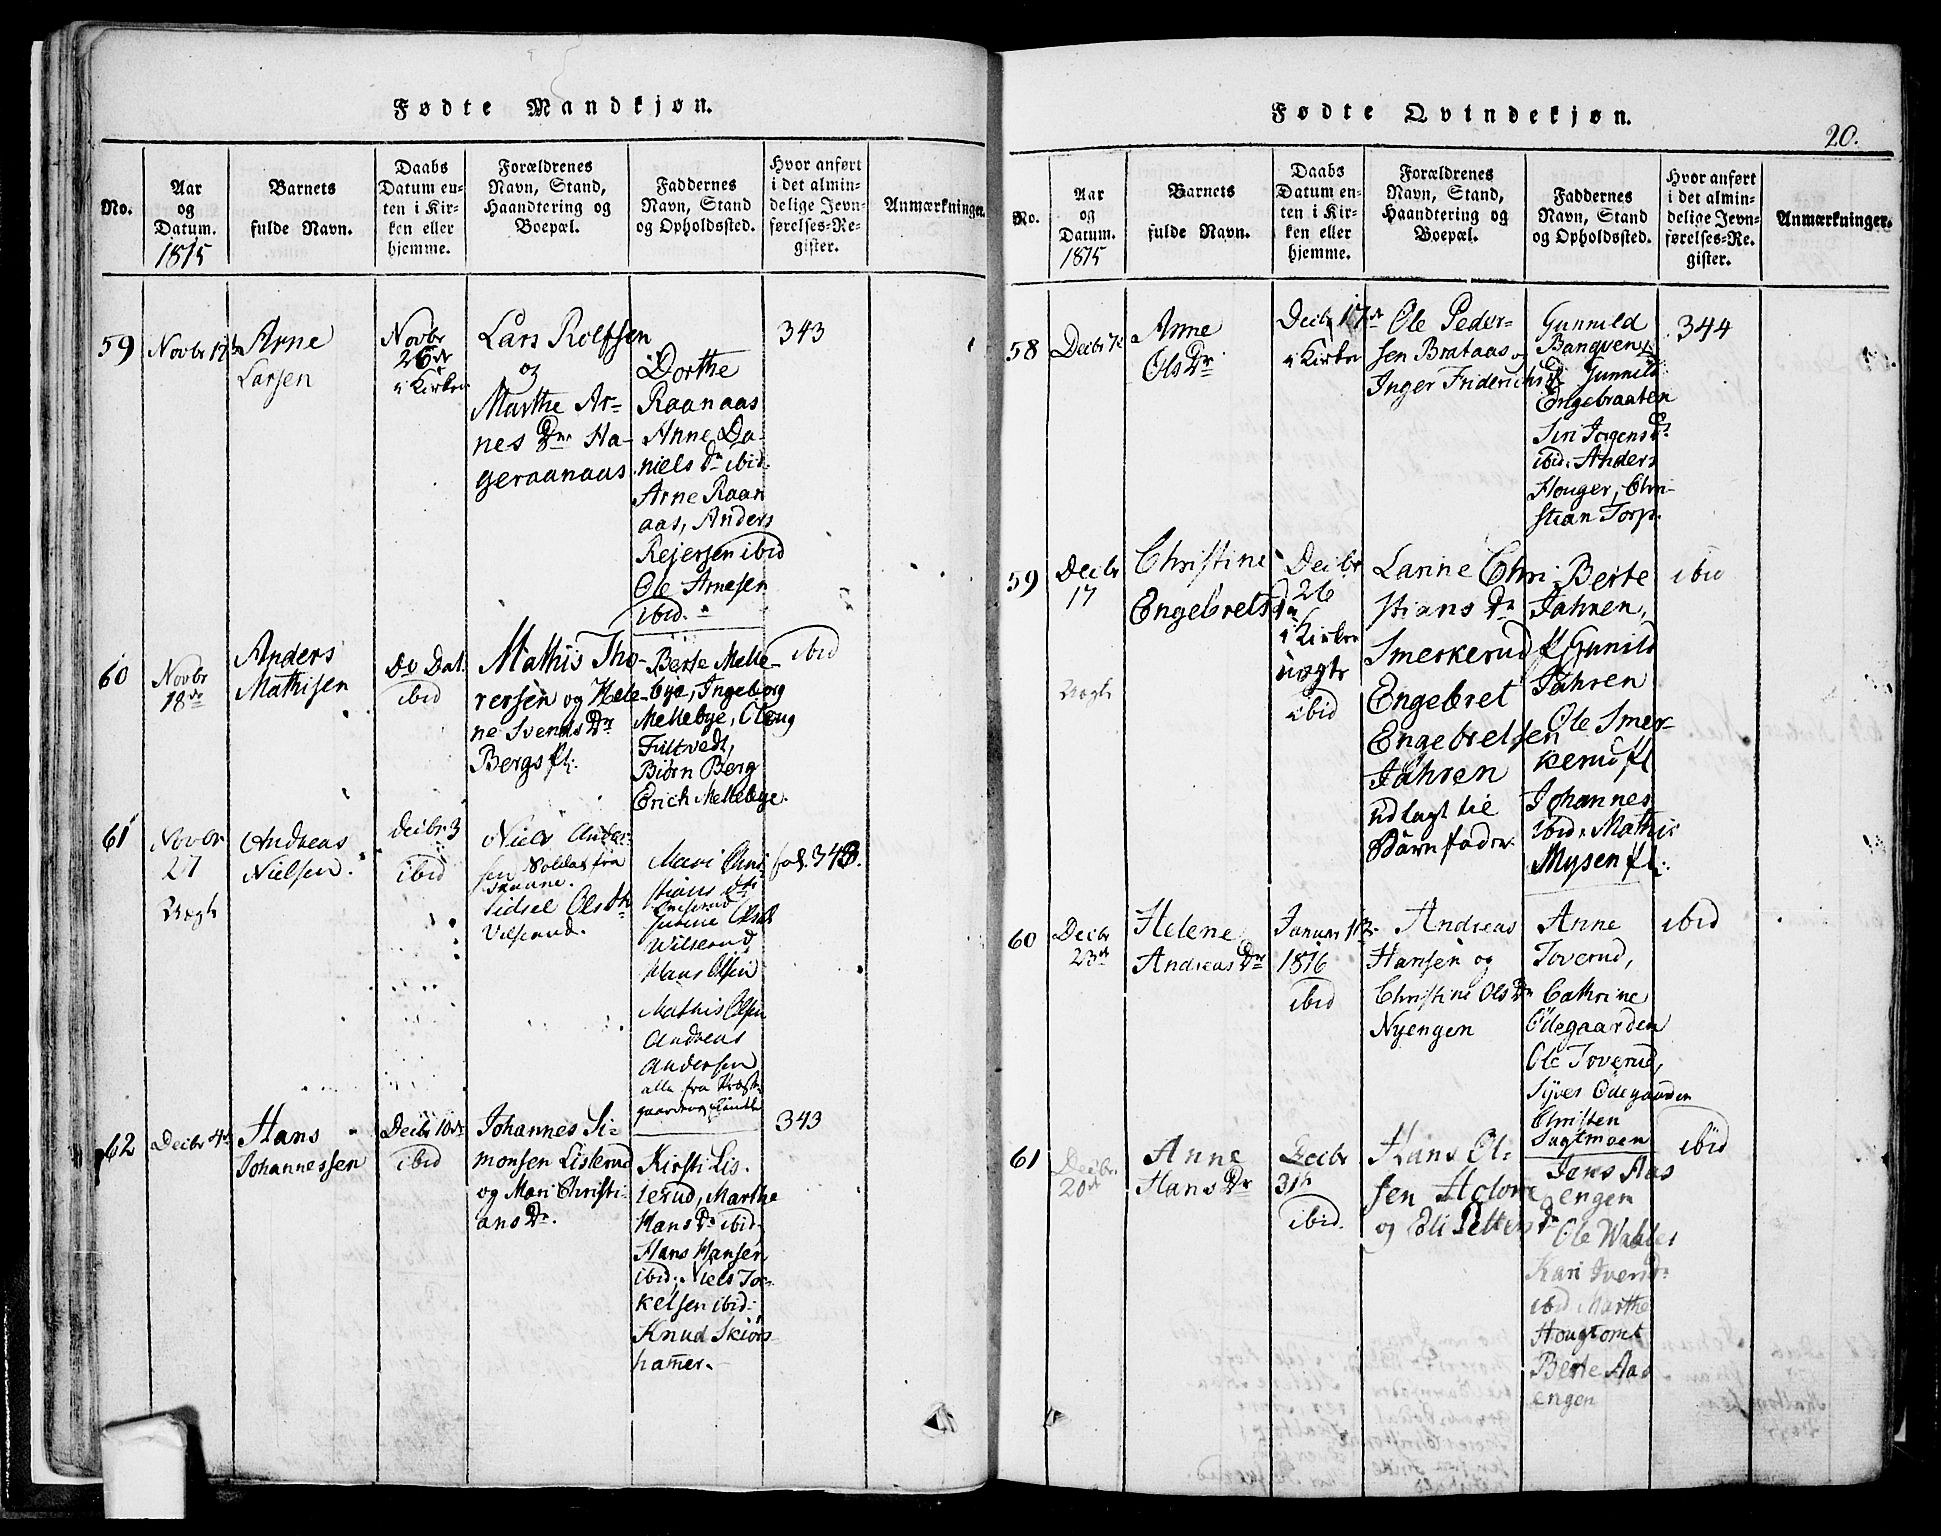 Fødte Mandkjøn.
No.
Aar
og
Datum.
1815
Barnets
fulde Navn.
Daabs
Datum en-
ten i Kir-
ken eller
hjemme.
Forældrenes
Navn, Stand,
Haandtering og
Boepæl.
Faddernes
Navn, Stand
og Opholdssted.
Hvor anført
i det almin-
delige Jevn-
førelses-Re-
gister.
Anmærkninger.
59
Novbr 17
Arne
Larsen
Novbr
26de
i Kirken
Lars Rolfsen
og
Marthe Ar-
nes Dr Ha-
geraanaas
Dorthe
Raanaas
Anne Da-
niels Dr ibid.
Arne Raan
aas, Anders
Rejersen ibid
Ole Arnesen
ibid.
343
60
Novbr
18de
Anders
Mathisen
Do Dat.
ibid
Mathis Tho-
rersen og Hele-
ne Svends Dr
Bergs fl:
Berte Melle-
bye, Ingeborg
Mellebye, Oleug
Fultvedt,
Biørn Berg
Erich Mellebye.
ibid
61
Novbr
27
Uægte
Andreas
Nielsen.
Decbr 3
ibid
Niels Ander-
sen Soldat fra
Sidsel Ols
Mari Chri
stians
Wilserud,
Hans Olsen
Mathis Olsen
Andreas
Andersen
alle fra
fol. 343.
62
Decbr 4de
Hans
Johannessen
Decbr 10de
ibid
Johannes Si-
monsen Lislerud
og Mari Christi-
ans Dr.
Kirsti Lis-
lerud, Marthe
Hans Dr ibid,
Hans Hansen
ibid, Niels Tor-
kelsen ibid:
Knud Skiørs-
hamer.
343
Fødte Qvindekjøn.
20.
No.
Aar
og
Datum.
1815
Barnets
fulde Navn.
Daabs
Datum en-
ten i Kir-
ken eller
hjemme.
Forældrenes
Navn, Stand,
Haandtering og
Boepæl.
Faddernes
Navn, Stand
og Opholdssted.
Hvor anført
i det almin-
delige Jevn-
førelses-Re-
gister.
Anmærkninger.
58
Decbr 7
Anne
Ols Dr
Decbr 17de
i Kirken
Ole Peder-
sen Brataas og
Inger Friderichs Dr
Gunnild
Bangven,
Gunnild
Engebraaten
Siri Jørgens Dr
ibid. Anders
Houger, Chri-
stian Torp.
344
59
Decbr
17
Uægte
Christine
Engebrets Dr
Decbr
26
i Kirken
uægte
ibid
Lanne Chri-
stians Dr
Smerkerud fl
Engebret
Engebretsen
Jahren
udlagt til
Barnfader.
Berte
Jahren,
Gunild
Jahren
Ole Smer-
kerud, fl
Johannes
ibid. Mathis
Mysen fl:
ibid
60
Decbr
23de
Helene
Andreas Dr
Januar 1
1816
ibid
Andreas
Hansen og
Christine Ols Dr
Nyengen
Anne
Toverud,
Cathrine
Ødegaarden
Ole Toverud,
Syver Ødegaarden
Christen
Sagtmoen
ibid
61
Decbr
20de
Anne
Hans Dr
Decbr
31te
ibid.
Hans Ol-
sen Holme
og Eli Petters Dr
Jens Aas
engen
Ole
Kari
ibid Marthe
Hougtomt
Berte Aas
engen
ibid